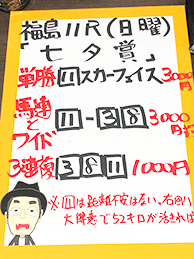 福島11R(日曜)
「七夕賞」
単勝 11 スカーフェイス 3000円
馬連とワイド 11-38 3000円
3連複 3 8 11 1000円
※11は距離不安はない、右回り
大得意で52キロが活きれば